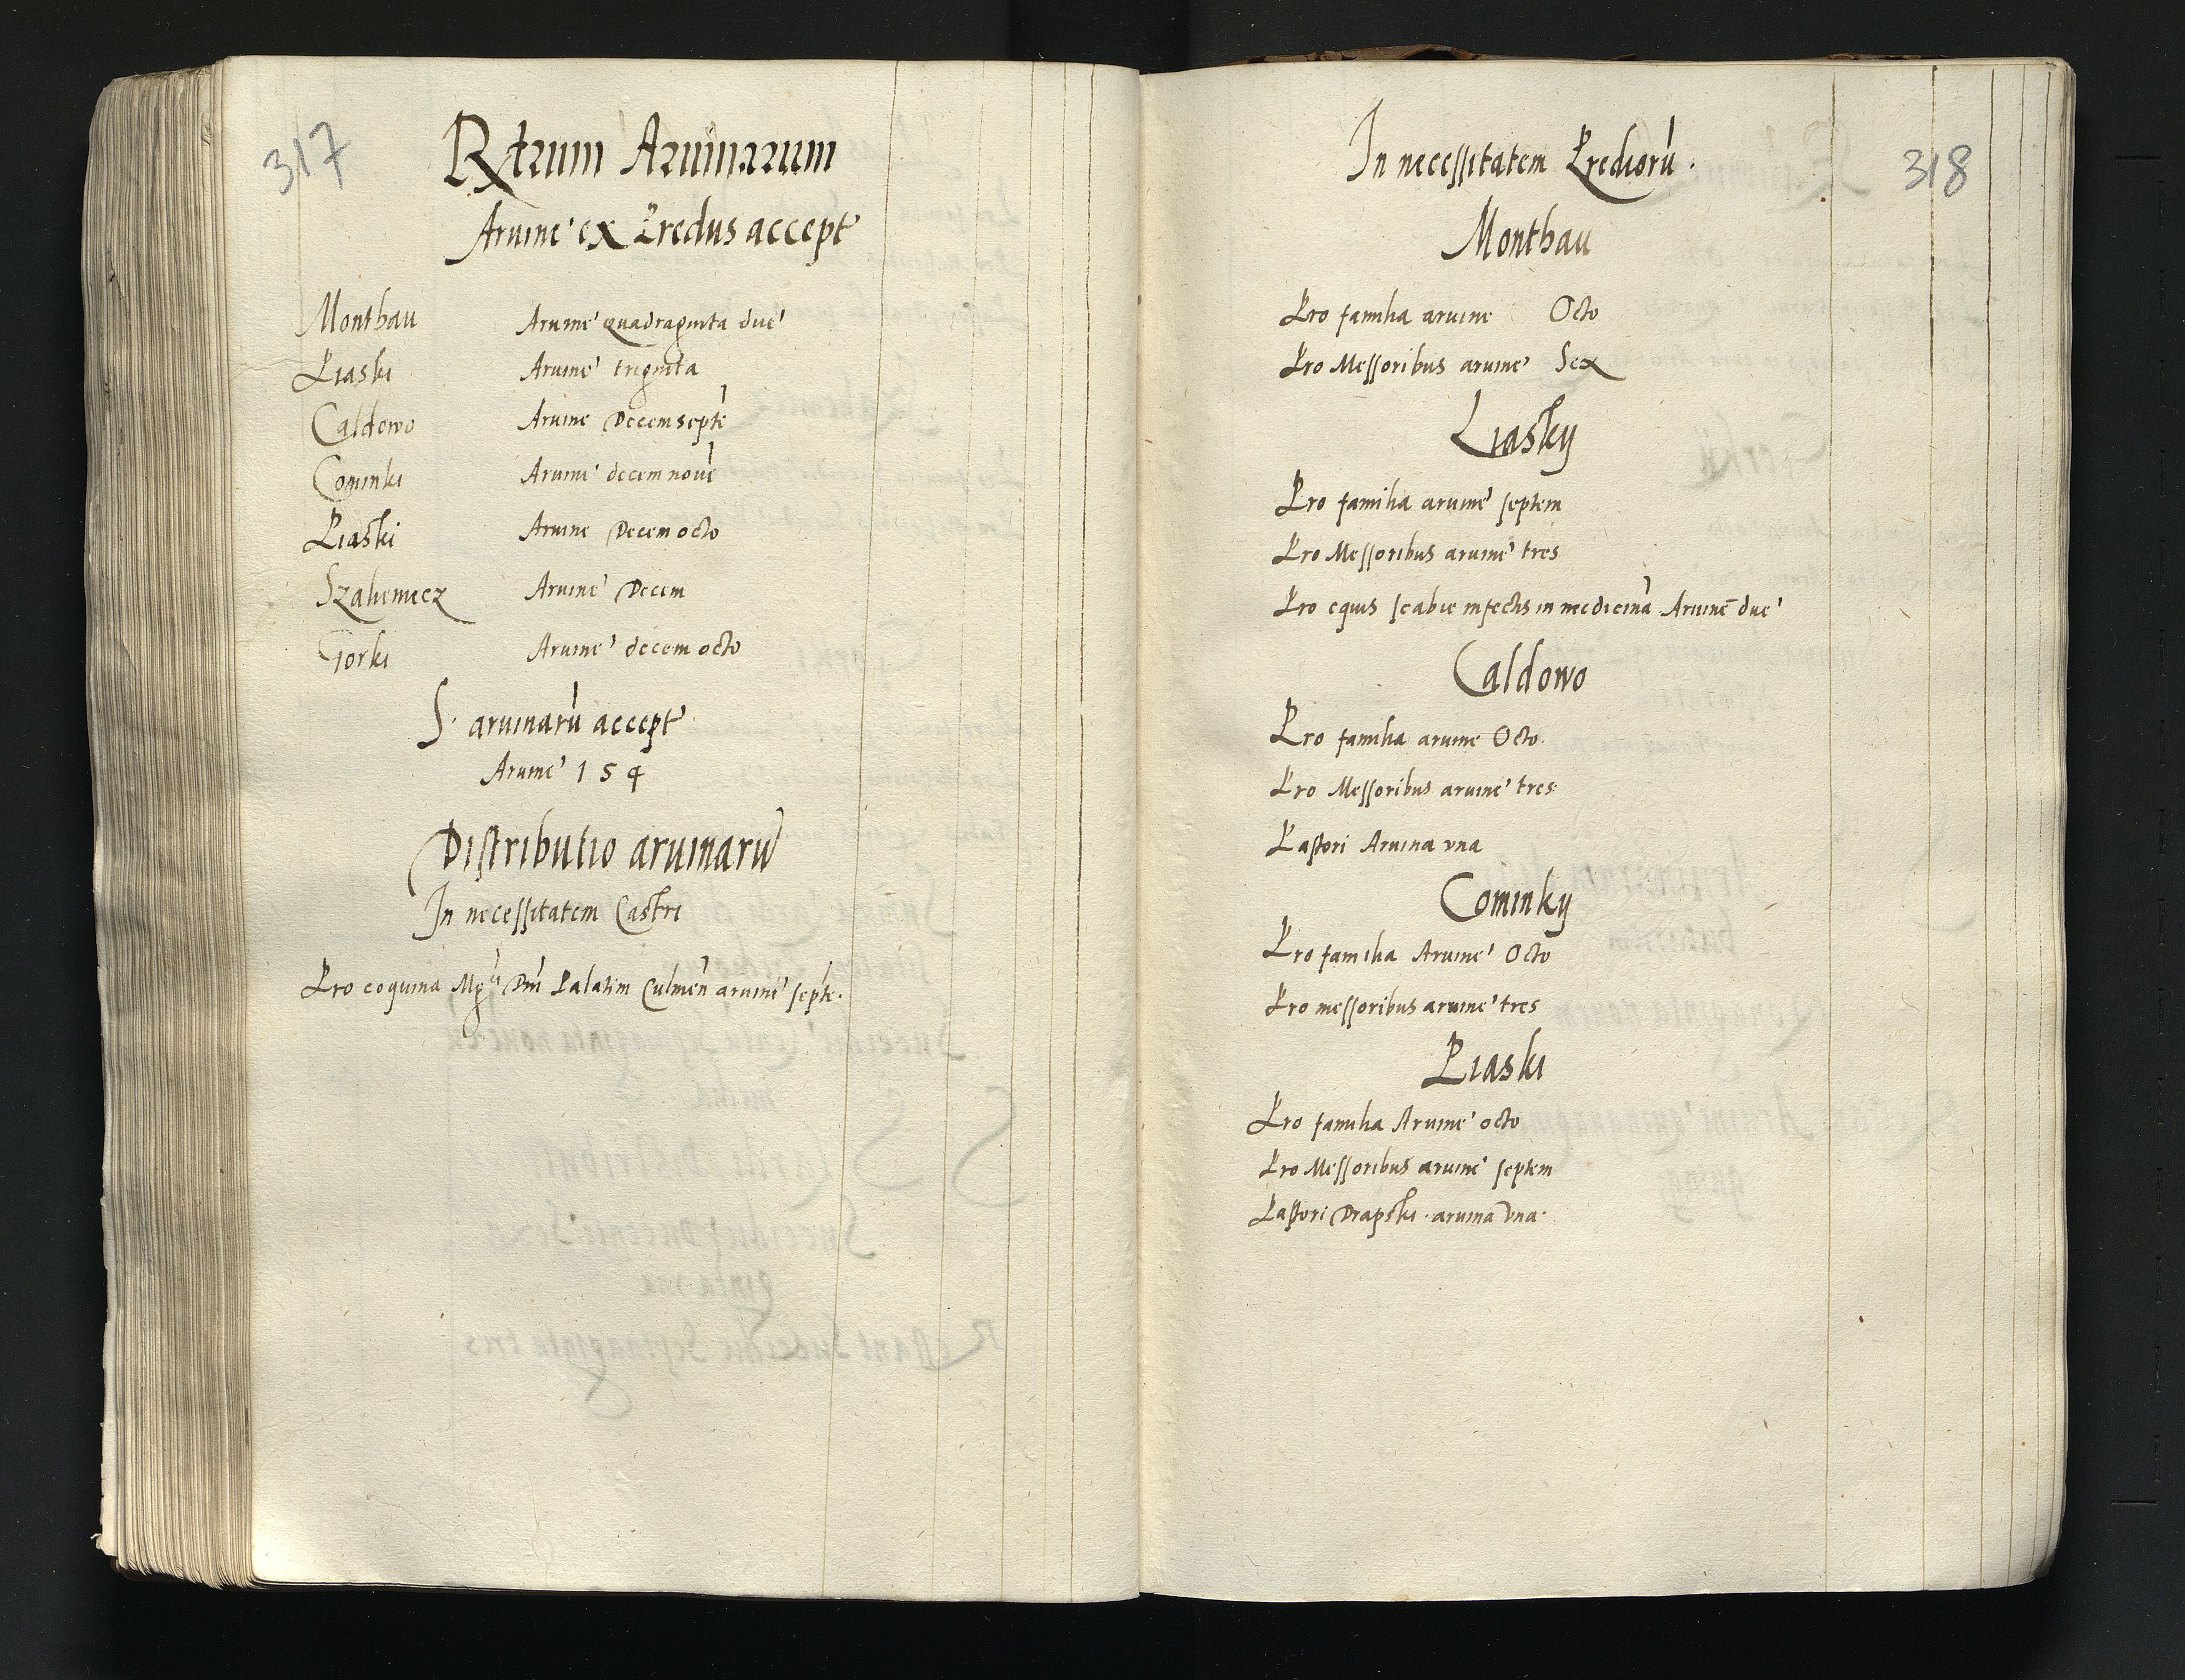 317
Rtrum Aruinarum
Aruine ex Predijs accept
Montbau Aruine quadraginta due
Liaski Aruine triginta
Caldowo Aruine Decem septe
Cominki Aruine decem noue
Piaski Aruine Decem octo
Szalueniecz Aruine Decem
Gorki Aruine decem octo
S. aruinarū accept
Aruine 154
Distributio aruinarū
In necessitatem Castri
Pro coquina Mgci Dni Palatini Culmen aruine septe.
318
In necessitatem Prediorū.
Montbau
Pro familia aruine Octo
Pro Messoribus aruine Sex
Liasky
Pro familia aruine septem
Pro Messoribus aruine tres
Pro equis scabie infectis in medicinā Aruine due
Caldowo
Pro familia aruine Octo.
Pro Messoribus aruine tres
Pastori Aruina vna
Cominky
Pro familia Aruine Octo
Pro messoribus aruine tres
Piaski
Pro familia Aruine octo
Pro Messoribus aruine septem
Pastori Drapski. aruina Vna.